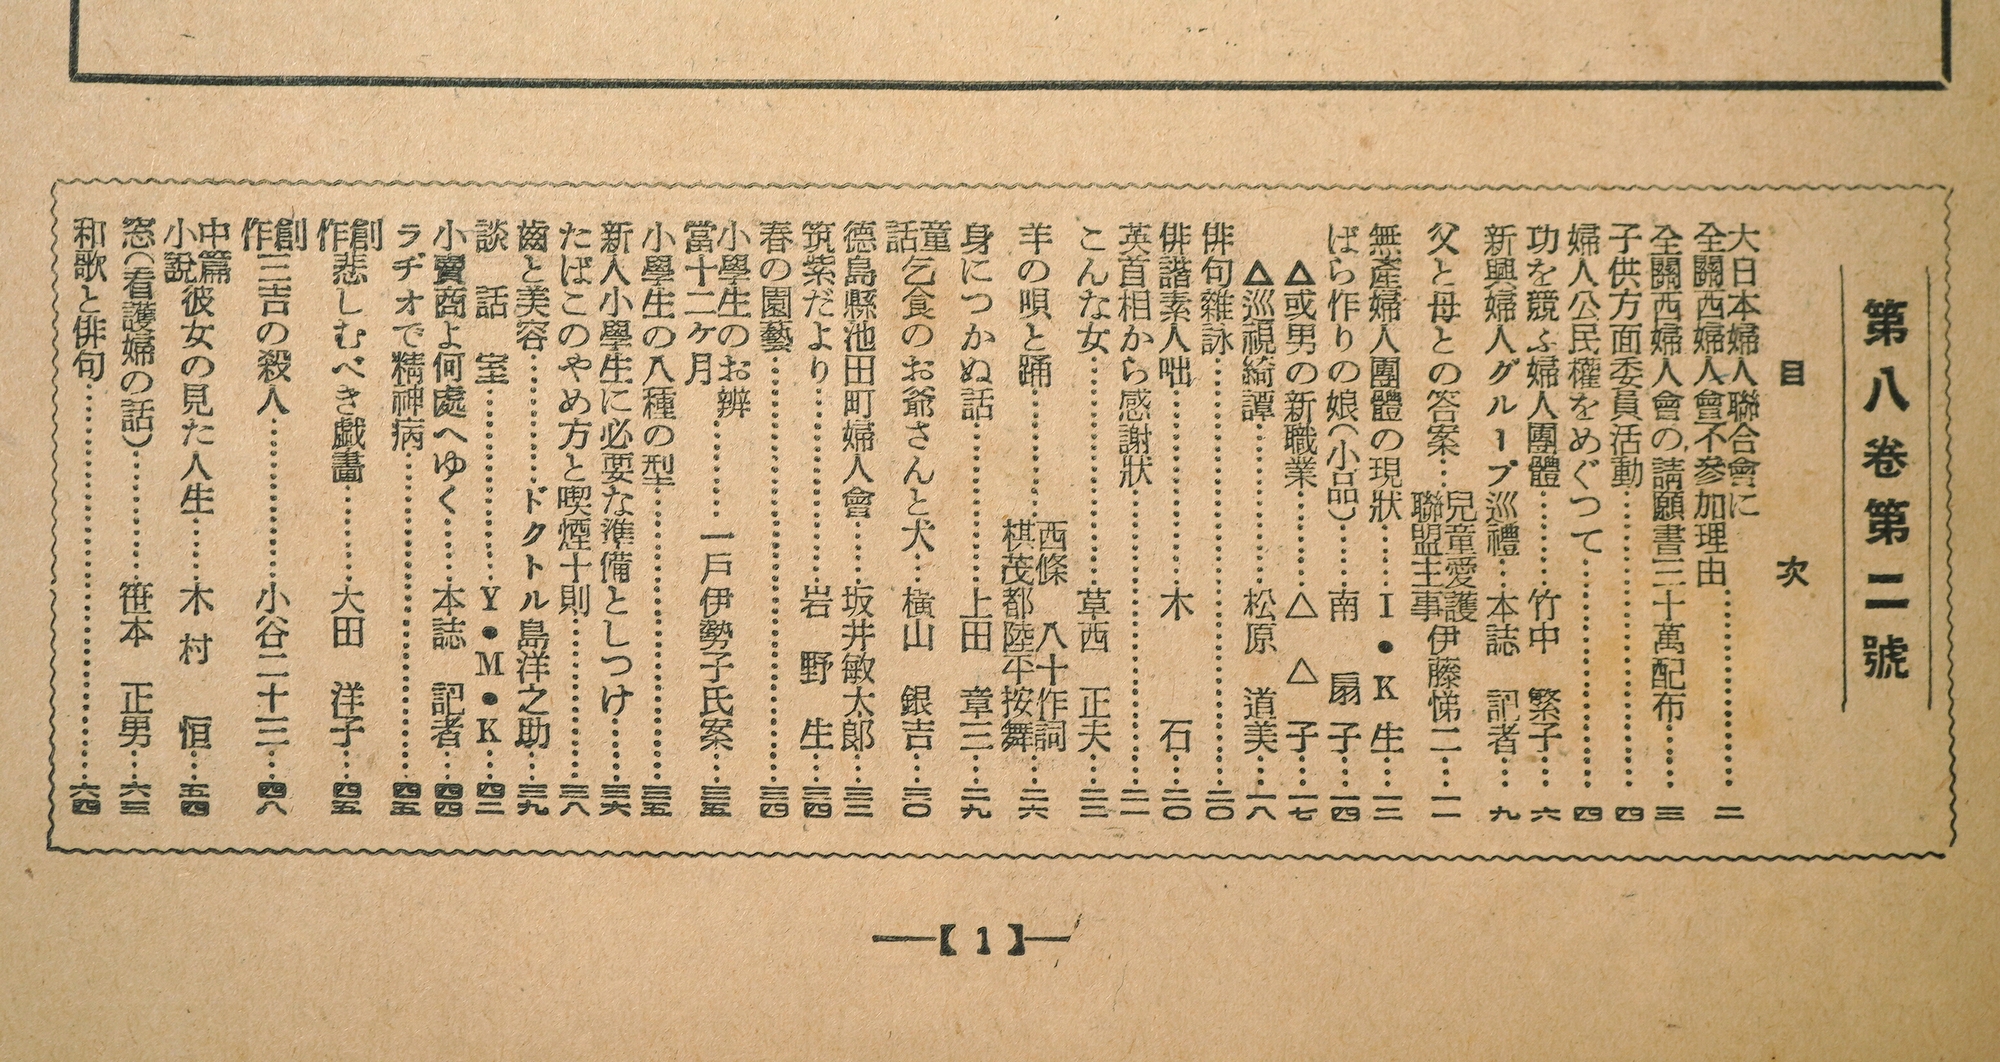 第八卷第二號
目次
大日本婦人聯合會に
全關西婦人會不參加理由……二
全關西婦人會の請願書三十萬配布……三
子供方面委員活動……四
婦人公民權をめぐつて……四
功を競ふ婦人團體……竹中 繁子……六
新興婦人グループ巡禮……本誌 記者……九
父と母との答案……兒童愛護聯盟主事伊藤悌二……一一
無產婦人團體の現狀……I・K生……一二
ばら作りの娘(小品)……南 扇子……一四
△或男の新職業……△ △ 子……一七
△巡視綺譚……松原 道美……一八
俳句雜詠……二〇
俳諧素人咄……木 石……二〇
英首相から感謝狀……二一
こんな女……草西 正夫……二二
羊の唄と踊……西條 八十作詞 棋茂都陸平按舞……二六
身につかぬ話……上田 章三……二九
童話乞食のお爺さんと犬……橫山 銀吉……三〇
德島縣池田町婦人會……坂井敏太郞……三二
筑紫だより……岩 野 生……三四
春の園藝……三四
小學生のお辨當十二ケ月……一戶伊勢子氏案……三五
小學生の八種の型……三五
新入小學生に必要な準備としつけ……三六
たばこのやめ方と喫煙十則……三八
齒と美容……ドクトル島洋之助……三九
談話室……Y・M・K……四二
小賣商よ何處へゆく……本誌 記者……四四
ラヂオで精神病……四五
創作悲しむべき戲畵……大田 洋子……四五
創作三吉の殺人……小谷二十三……四八
中篇小說彼女の見た人生……木村 恒……五四
窓(看護婦の話)……笹本 正男……六三
和歌と俳句……六四
【1】